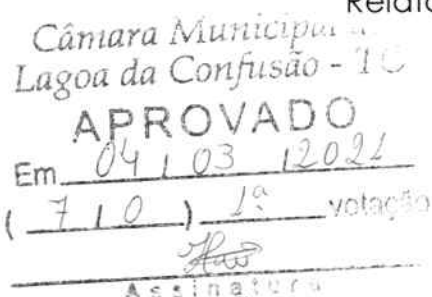 Relato
Câmara Municipal
Lagoa da Confusão - TO
APROVADO
Em 04 / 03 / 2021
( 7 / 0 ) 1ª votação
Assinatura